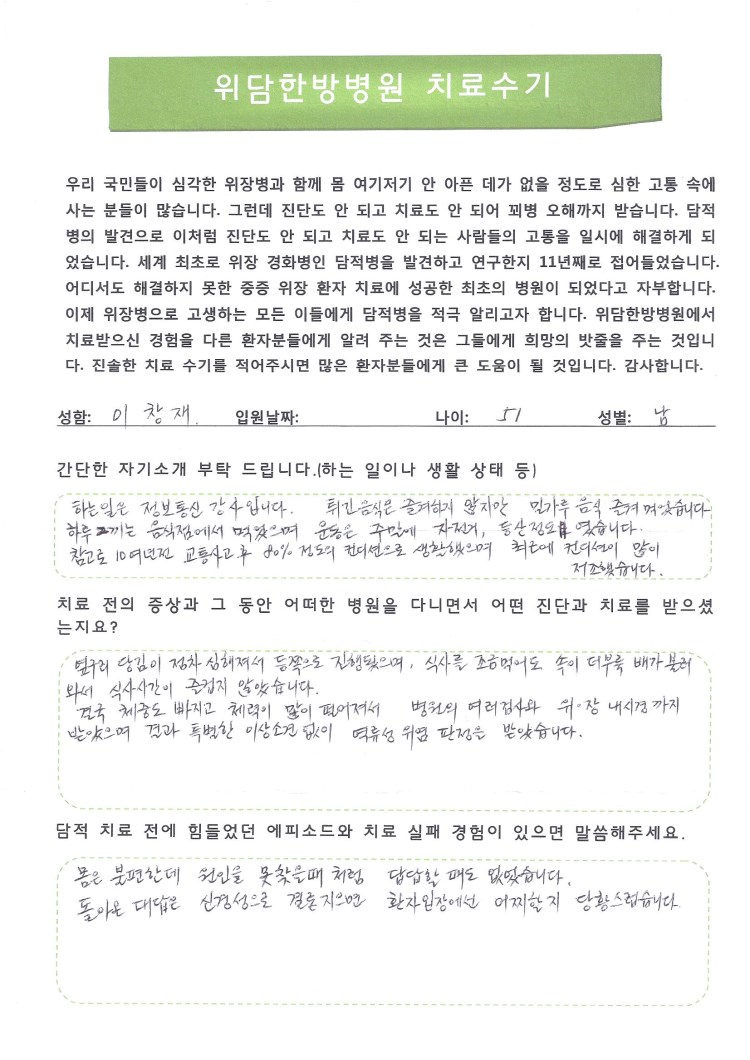 위담한방병원 치료수기
우리 국민들이 심각한 위장병과 함께 몸 여기저기 안 아픈 데가 없을 정도로 심한 고통 속에
사는 분들이 많습니다. 그런데 진단도 안 되고 치료도 안 되어 꾀병 오해까지 받습니다. 담적
병의 발견으로 이처럼 진단도 안 되고 치료도 안 되는 사람들의 고통을 일시에 해결하게 되
었습니다. 세계 최초로 위장 경화병인 담적병을 발견하고 연구한지 11년째로 접어들었습니다.
어디서도 해결하지 못한 중증 위장 환자 치료에 성공한 최초의 병원이 되었다고 자부합니다.
이제 위장병으로 고생하는 모든 이들에게 담적병을 적극 알리고자 합니다. 위담한방병원에서
치료받으신 경험을 다른 환자분들에게 알려 주는 것은 그들에게 희망의 밧줄을 주는 것입니
다. 진솔한 치료 수기를 적어주시면 많은 환자분들에게 큰 도움이 될 것입니다. 감사합니다.
성함: 이창재. 입원날짜: 나이: 51 성별: 남
간단한 자기소개 부탁 드립니다.(하는 일이나 생활 상태 등)
하는일은 정보통신 감사입니다. 튀긴음식은 즐겨하지 않지만 밀가루 음식 즐겨 먹었습니다.
하루 2끼는 음식점에서 먹었으며 운동은 주말에 자전거, 등산정도 였습니다.
참고로 10여년전 교통사고 후 80% 정도의 컨디션으로 생활했으며 최근에 컨디션이 많이
저조했습니다.
치료 전의 증상과 그 동안 어떠한 병원을 다니면서 어떤 진단과 치료를 받으셨
는지요?
옆구리 당김이 점차 심해져서 등쪽으로 진행됐으며, 식사를 조금먹어도 속이 더부룩 배가 불러
와서 식사시간이 즐겁지 않았습니다.
결국 체중도 빠지고 체력이 많이 떨어져서 병원의 여러검사와 위·장 내시경까지
받았으며 결과 특별한 이상소견 없이 역류성 위염 판정을 받았습니다.
담적 치료 전에 힘들었던 에피소드와 치료 실패 경험이 있으면 말씀해주세요.
몸은 불편한데 원인을 못찾을때 처럼 답답할 때도 없었습니다.
돌아온 대답은 신경성으로 결론지으면 환자입장에선 어찌할지 당황스럽습니다.